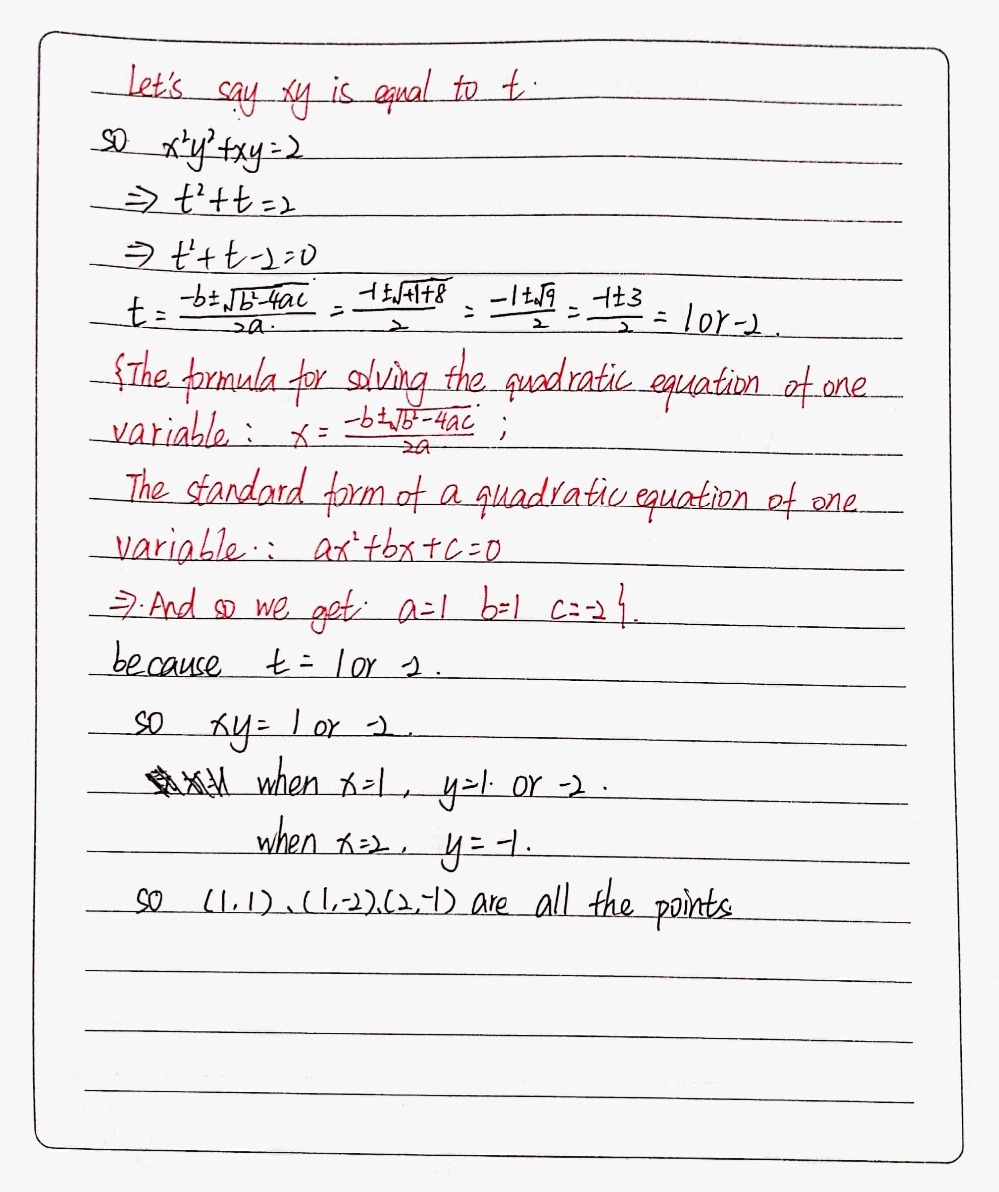 Let's say xy is equal to t.
so x²y²+xy=2
⇒ t²+t=2
⇒ t²+t-2=0
t = (-b±√(b²-4ac))/(2a) = (-1±√(+1+8))/2 = (-1±√9)/2 = (-1±3)/2 = 1 or -2.
{The formula for solving the quadratic equation of one
variable: x = (-b±√(b²-4ac))/(2a) ;
The standard form of a quadratic equation of one
variable: ax²+bx+c=0
⇒ And so we get: a=1 b=1 c=-2}.
because t = 1 or -2.
so xy = 1 or -2.
when x=1, y=1 or -2.
when x=2, y=-1.
so (1,1)、(1,-2)、(2,-1) are all the points